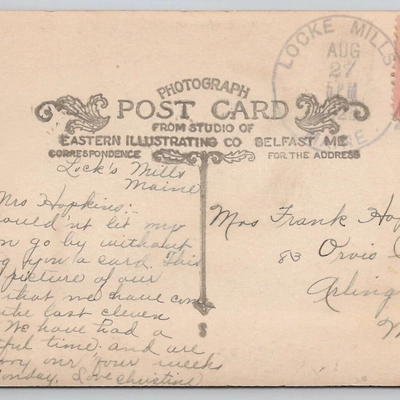 LOCKE MILLS
AUG
27
MAINE
PHOTOGRAPH
POST CARD
FROM STUDIO OF
EASTERN ILLUSTRATING CO BELFAST ME
CORRESPONDENCE FOR THE ADDRESS
Lock's Mills
Maine
Mrs Hopkins:
n't let my
go by without
you a card. This
picture of our
that we have come
the last eleven
We have had a
ful time and are
our four weeks
onday. Love Christine
Mrs Frank Hop
83 Orvis
Arling
M
S